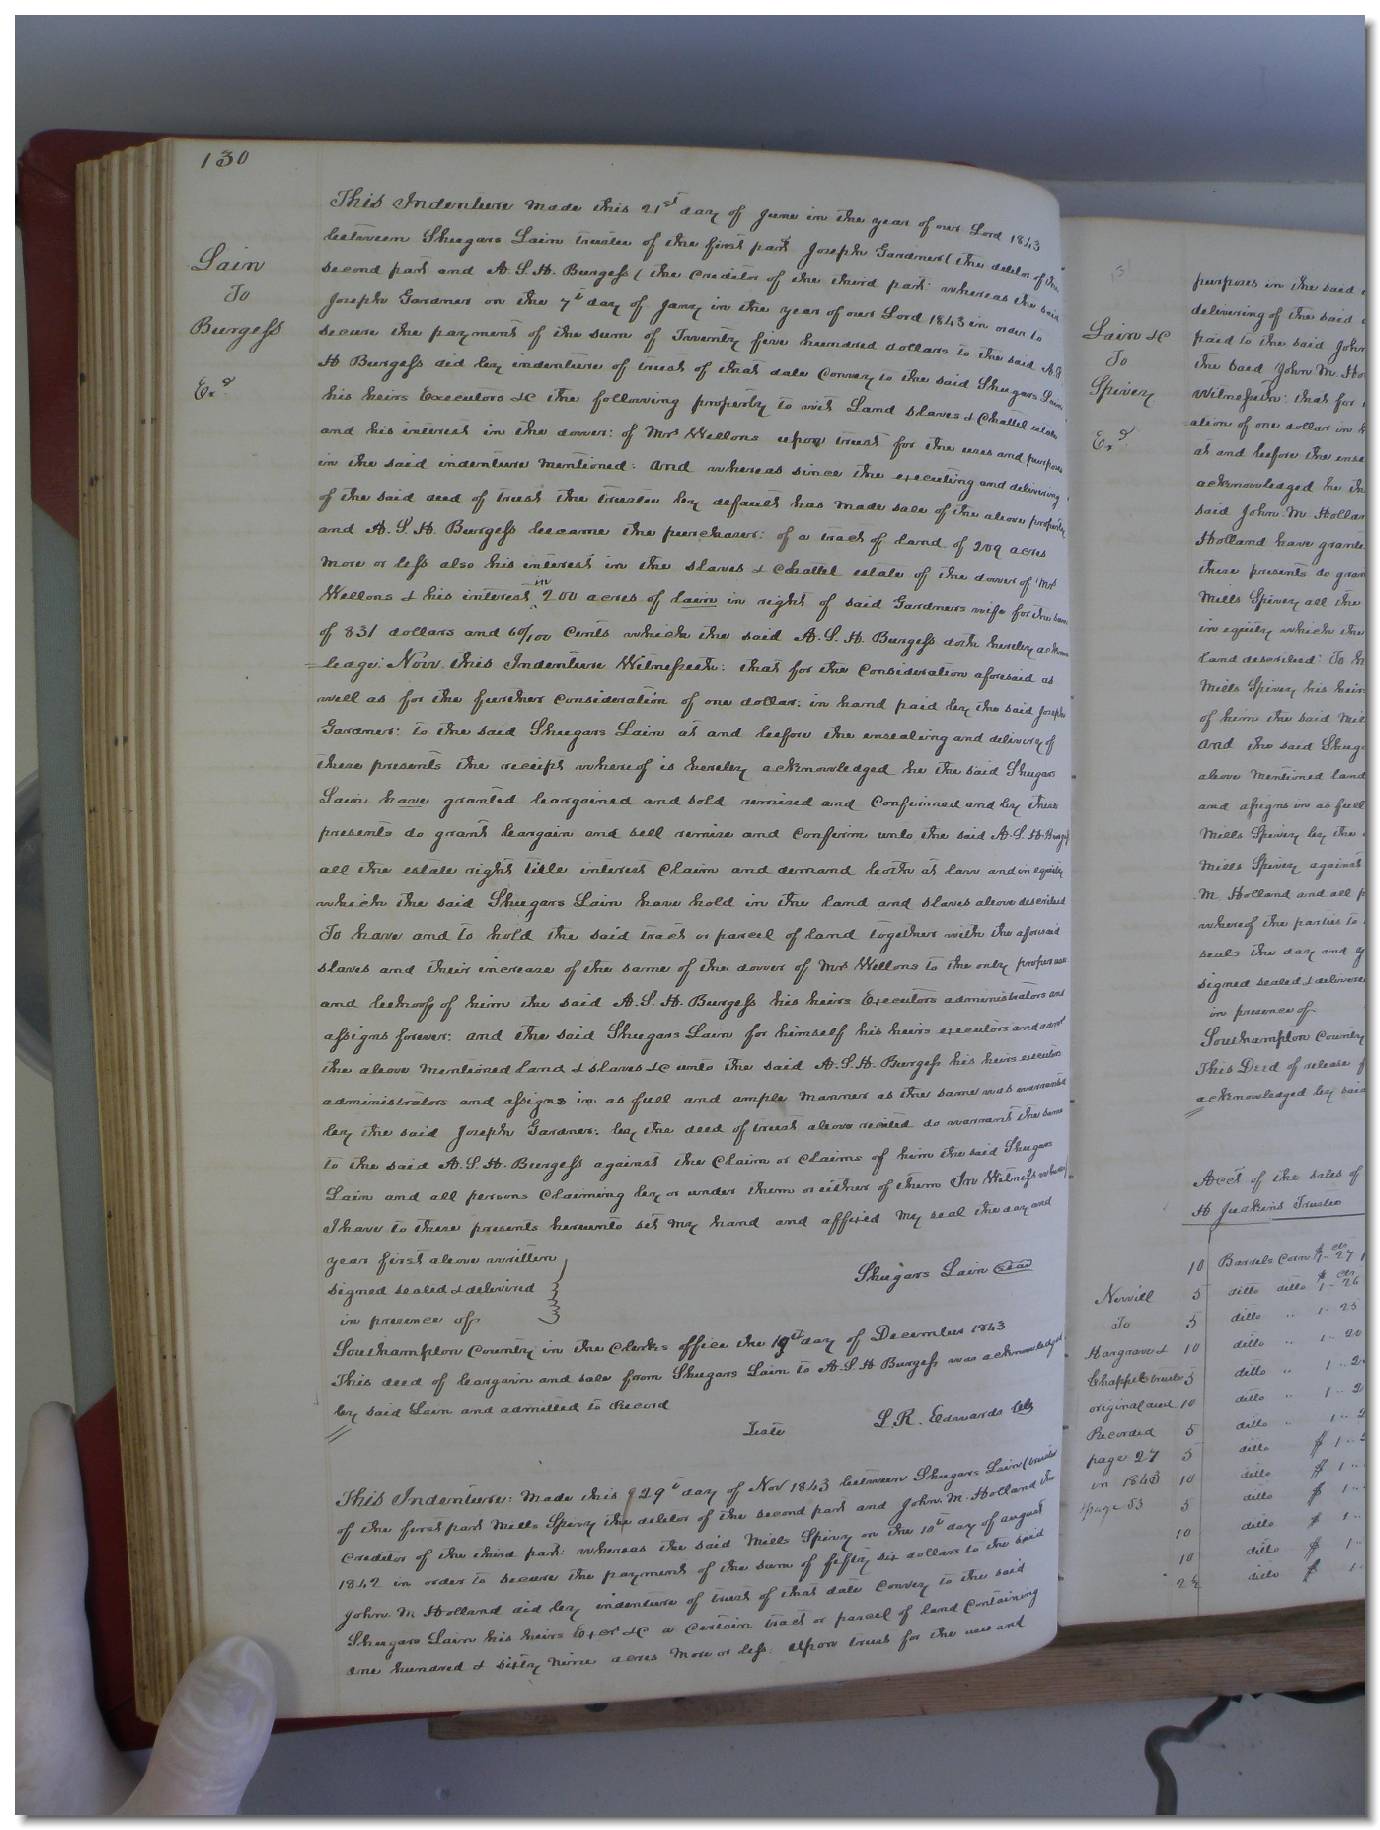 130
Lain
To
Burgess
Exd
This Indenture made this 21st day of June in the year of our Lord 1843
between Shugars Lain trustee of the first part Joseph Gardner (the debtor of the
second part and A. S. H. Burgess (the Creditor of the third part: whereas the said
Joseph Gardner on the 7th day of Jany in the year of our Lord 1843 in order to
secure the payment of the sum of Twenty five hundred dollars to the said A S
H Burgess did by indenture of trust of that date Convey to the said Shugars Lain
his heirs Executors &c the following property to wit Land slaves & Chattel estate
and his interest in the dower: of Mrs Wellons upon trust for the uses and purposes
in the said indenture mentioned: and whereas since the executing and delivering
of the said deed of trust the trustee by default has made sale of the above property
and A. S. H. Burgess became the purchaser: of a tract of land of 209 acres
more or less also his interest in the slaves & Chattel estate of the dower of Mrs
Wellons & his interest in 200 acres of lain in right of said Gardners wife for the sum
of 831 dollars and 60/100 Cents which the said A. S. H. Burgess doth hereby acknow
=ledge: Now this Indenture Witnesseth: that for the Consideration aforesaid as
well as for the further Consideration of one dollar: in hand paid by the said Joseph
Gardner: to the said Shugars Lain at and before the ensealing and delivery of
these presents the receipt whereof is hereby acknowledged he the said Shugars
Lain have granted bargained and sold remised and Confirmed and by these
presents do grant bargain and sell remise and Confirm unto the said A. S. H. Burgess
all the estate right title interest Claim and demand both at law and in equity
which the said Shugars Lain have hold in the land and slaves above described
To have and to hold the said tract or parcel of land together with the aforesaid
slaves and their increase of the same of the dower of Mrs Wellons to the only proper use
and behoof of him the said A. S. H. Burgess his heirs Executors administrators and
assigns forever: and the said Shugars Lain for himself his heirs executors and admr
the above mentioned land & slaves &c unto the said A. S. H. Burgess his heirs executors
administrators and assigns in as full and ample manner as the same was warranted
by the said Joseph Gardner: by the deed of trust above recited do warrant the same
to the said A. S. H. Burgess against the Claim or Claims of him the said Shugars
Lain and all persons Claiming by or under them or either of them In Witness whereof
I have to these presents hereunto set my hand and affixed my seal the day and
year first above written
signed sealed & delivered
in presence of
Shugars Lain seal
Southampton County: in the Clerks office the 19th day of December 1843
This deed of bargain and sale from Shugars Lain to A. S. H Burgess was acknowledged
by said Lain and admitted to Record
Teste L. R. Edwards Clk
This Indenture: made this 29th day of Nov 1843 between Shugars Lain (trustee
of the first part Mills Spivey the debtor of the second part and John. M. Holland the
Creditor of the third part: whereas the said Mills Spivy on the 10th day of august
1842 in order to secure the payment of the sum of fifty six dollars to the said
John. M Holland did by indenture of trust of that date Convey to the said
Shugars Lain his heirs Exor &c a Certain tract or parcel of land Containing
one hundred & sixty nine acres more or less: upon trust for the uses and
Lain &c
To
Spivey
Exd
purposes in the said
delivering of the said
paid to the said John
the said John M. Ho
Witnesseth: that for
ation of one dollar in h
at and before the ense
acknowledged he th
said John. M. Hollan
Holland have grante
these presents do gran
Mills Spivey all the
in equity which the
land described: To h
Mills Spivey his heir
of him the said Mil
and the said Shuga
above mentioned land
and assigns in as full
Mills Spivey by the
Mills Spivey against
M. Holland and all p
whereof the parties to
seals the day and y
signed sealed & delivere
in presence of
Southampton County
This Deed of release f
acknowledged by said
Acct of the sales of
H Judkins Trustee
10 Barrels Corn $ 1. 27
Nevvill 5 ditto ditto $ 1- 26
To 5 ditto " 1- 25
Hargrave & 10 ditto " 1- 20
Chappel trustee 5 ditto " 1- 2
original deed 10 ditto " 1- 2
Recorded 5 ditto " 1- 2
page 27 5 ditto $ 1-
in 1843 10 ditto $ 1-
page 53 5 ditto $ 1-
10 ditto $ 1-
10 ditto $ 1-
2½ ditto $ 1-